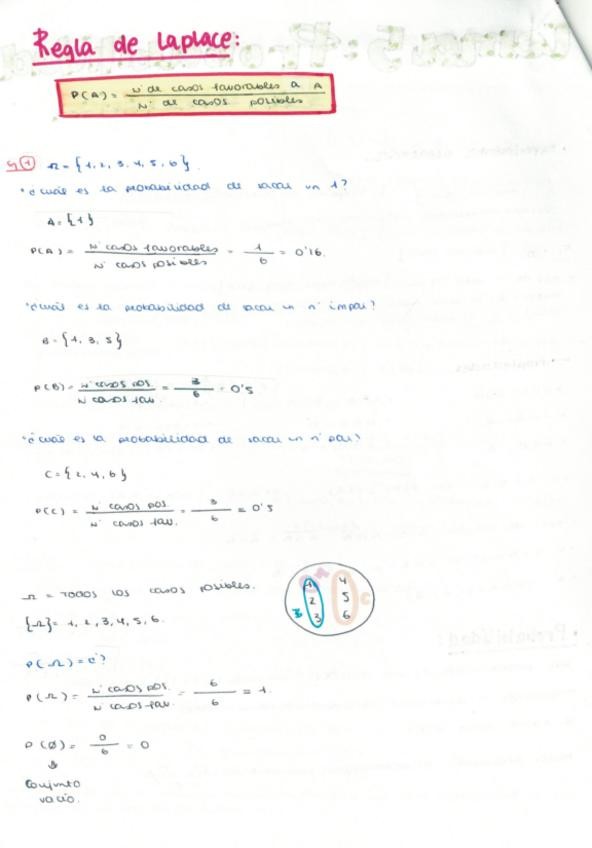 Regla de Laplace:
P(A) = Nº de casos favorables a A / Nº de casos posibles
Ej 1 Ω = {1, 2, 3, 4, 5, 6}.
· ¿cuál es la probabilidad de sacar un 1?
A = {1}
P(A) = Nº casos favorables / Nº casos posibles = 1/6 = 0'16.
· ¿cuál es la probabilidad de sacar un nº impar?
B = {1, 3, 5}
P(B) = Nº casos pos. / Nº casos fav. = 3/6 = 0'5
· ¿cuál es la probabilidad de sacar un nº par?
C = {2, 4, 6}
P(C) = Nº casos pos. / Nº casos fav. = 3/6 = 0'5
Ω = Todos los casos posibles.
{Ω} = 1, 2, 3, 4, 5, 6.
A
1 4
2 5
3 6
B C
P(Ω) = ¿?
P(Ω) = Nº casos pos. / Nº casos fav. = 6/6 = 1.
P(Ø) = 0/6 = 0
Conjunto
vacío.